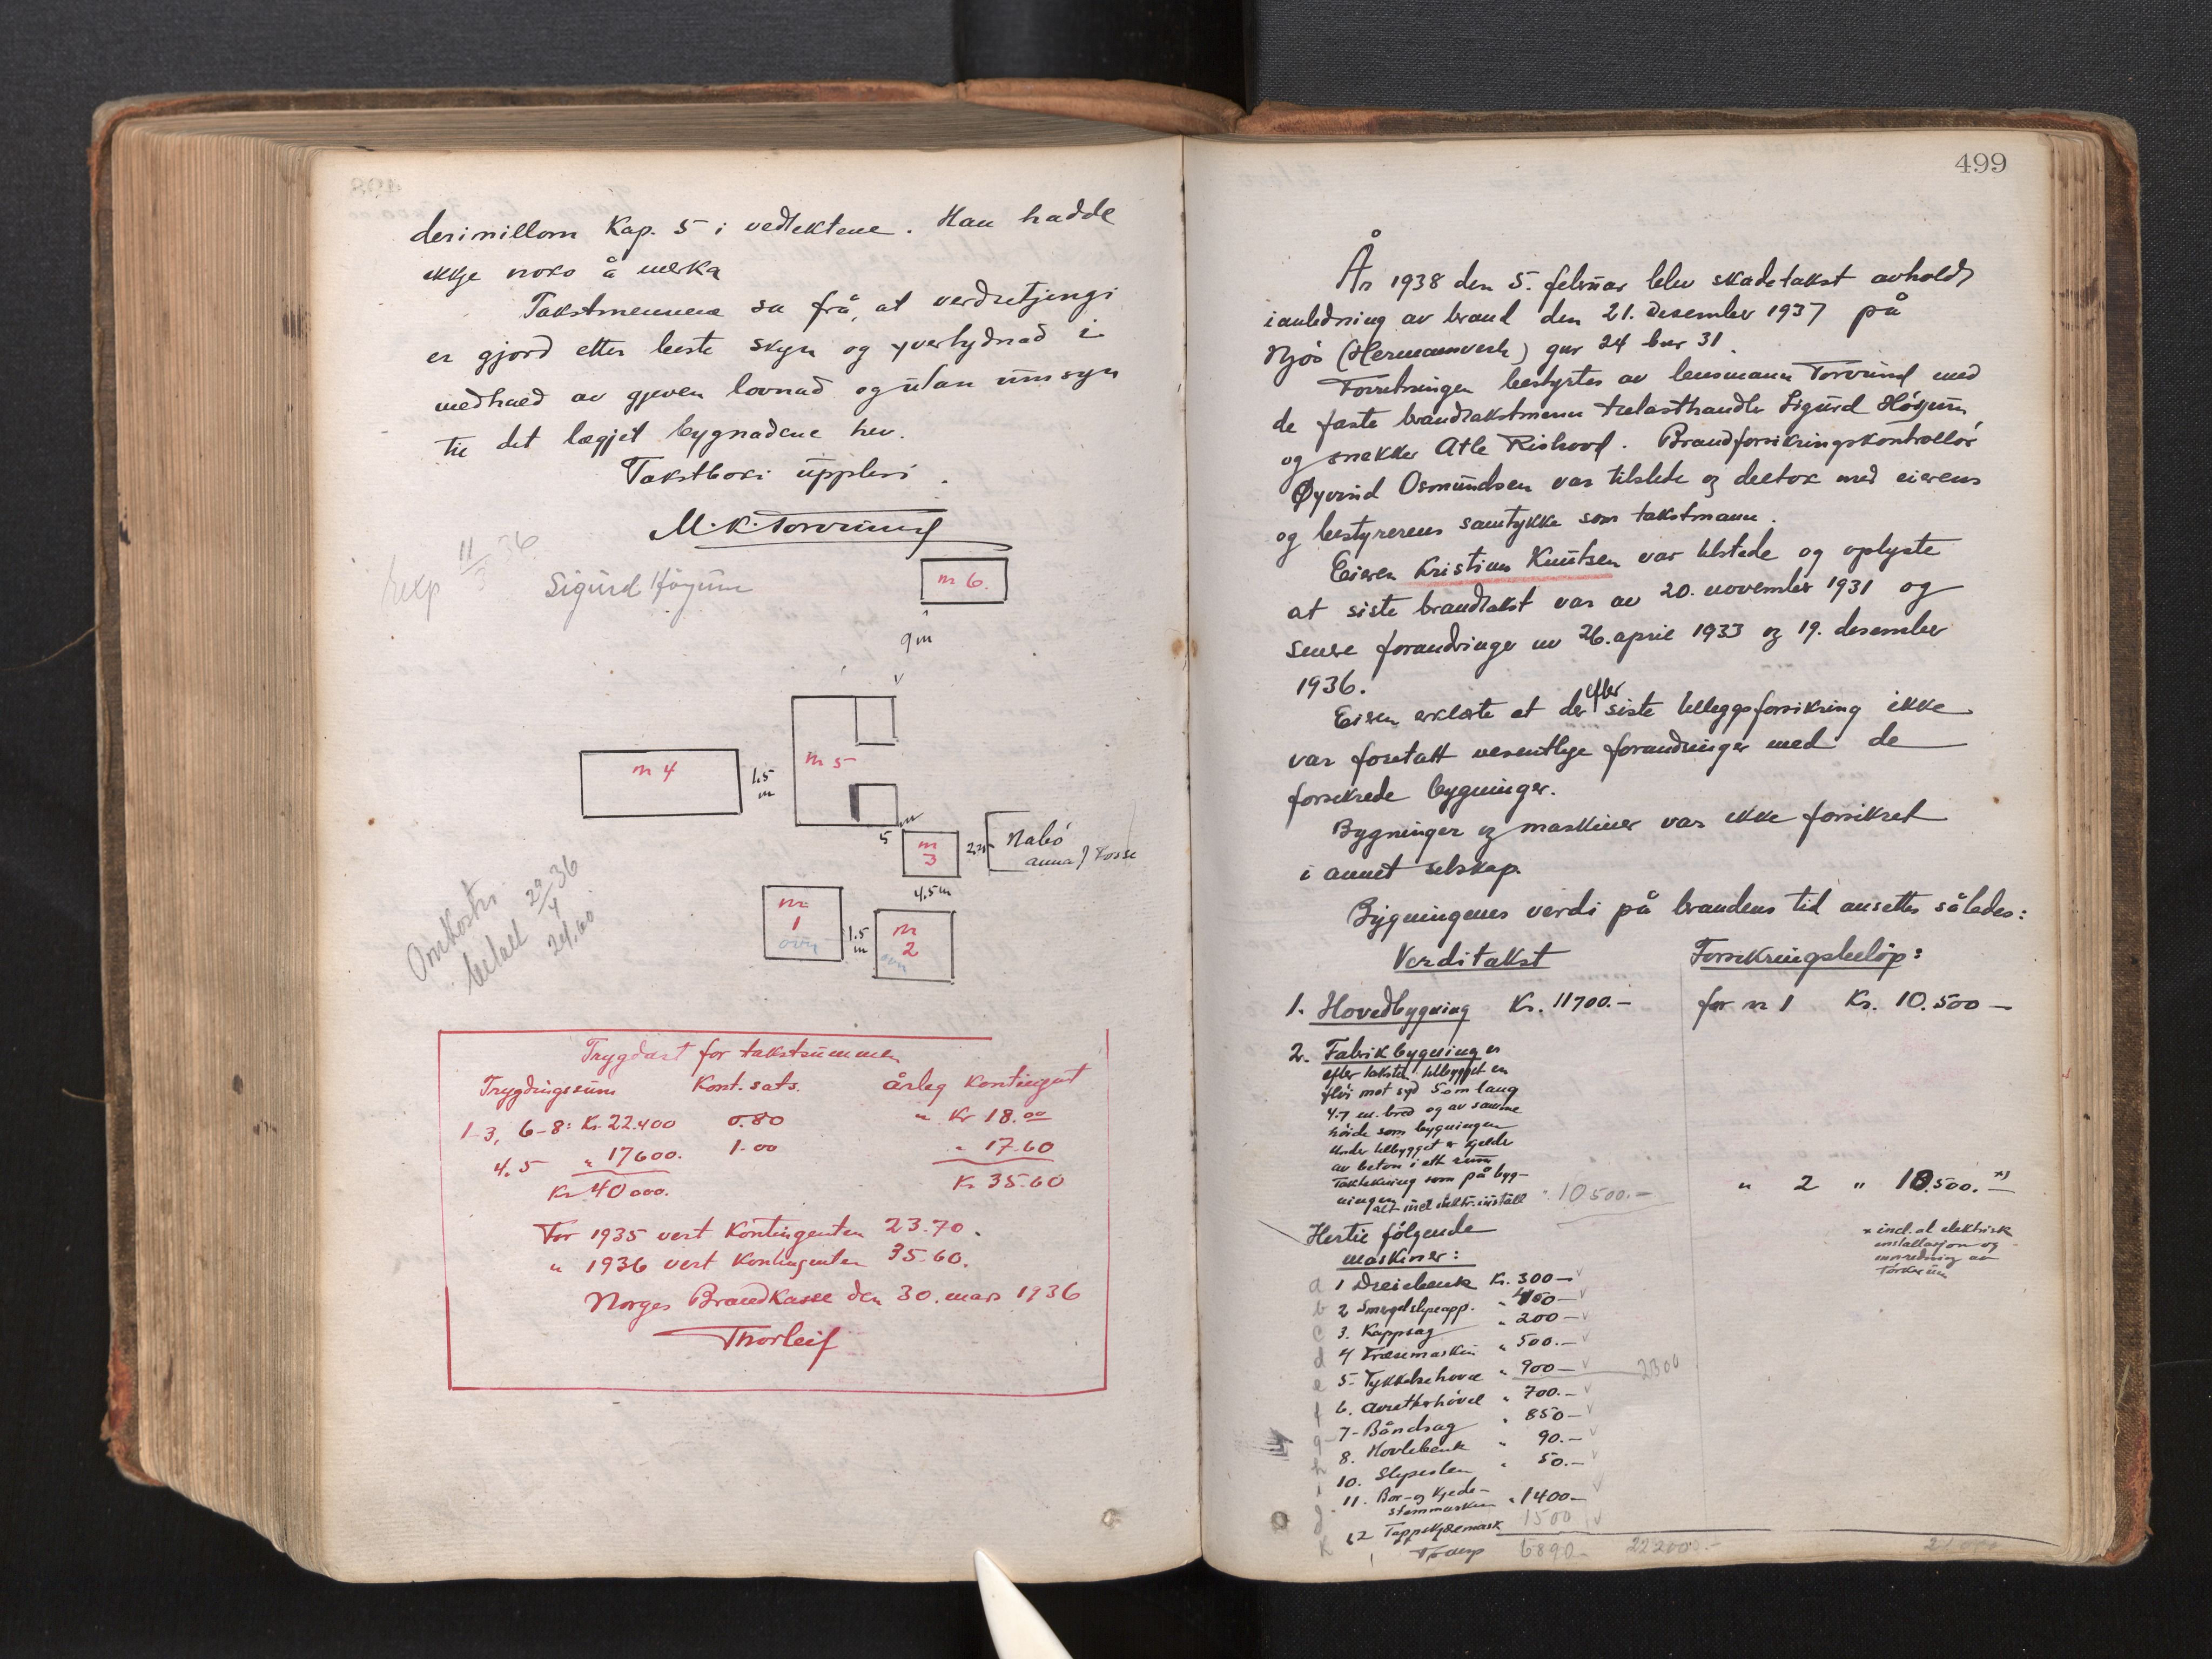 derimillom Kap. 5 i vedtektene. Han hadde
ikkje noko å merka
Takstmennene sa frå, at verdsetjingi
er gjord etter beste skyn og yvertydnad i
medhald av gjeven lovnad og utan umsyn
til det lægjet bygnadene hev.
Takstboki upplesi.
M. K. Torvund
Sigurd Høyum
11/3 36
nr 6.
9 m
nr 4
1.5 m
nr 5
5 m
nr 3
2 m
Nabo
4.5 m
nr 1
ovn
1.5 m
nr 2
ovn
Omkostn.
betalt 29/4 36
24.60
Trygdast for takstsummen
Trygdingssum Kont. sats. årleg kontingent
1-3, 6-8: Kr. 22.400 0.80 " Kr 18.00
4.5 " 17600. 1.00 " 17.60
Kr 40000. Kr 35.60
For 1935 vert kontingenten 23.70.
" 1936 vert kontingenten 35.60.
Norges Brandkasse den 30. mars 1936
Thorleif
499
År 1938 den 5. februar blev skadetakst avholdt
i anledning av brand den 21. desember 1937 på
Njøs (Hermansverk) gnr 24 bnr 31.
Forretningen bestyrtes av lensmann Torvund med
de faste brandtakstmenn trelasthandler Sigurd Høyum
og snekker Atle Rishovd. Brandforsikringskontrollør
Øyvind Osmundsen var tilstede og deltok med eierens
og bestyrerens samtykke som takstmann.
Eieren Kristian Knutsen var tilstede og oplyste
at siste brandtakst var av 20. november 1931 og
senere forandringer av 26. april 1933 og 19. desember
1936.
Eieren erklærte at der efter siste tilleggsforsikring ikke
var foretatt vesentlige forandringer med de
forsikrede bygninger.
Bygninger og maskiner var ikke forsikret
i annet selskap.
Bygningenes verdi på brandens tid ansettes således:
Verditakst Forsikringsbeløp:
1. Hovedbygning Kr. 11700.- for nr 1 Kr. 10.500 -
2. Fabrikbygning er
efter taksten tilbygget en
fløi mot syd 5 m lang
4.7 m. bred og av samme
høide som bygningen
Under tilbygget er kjeller
av beton i ett rum
Taktekning som på byg-
ningen alt incl elektr. install " 10500.- " 2 " 10.500.- x)
x incl. al elektrisk
installasjon og
innredning av
tørkerum
Hertil følgende
maskiner:
a 1 Dreiebenk Kr. 300 -
b 2 Smergelslipeapp. " 400 -
c 3. Kappsag " 200 -
d 4 Fræsemaskin " 500.-
e 5. Tykkelsehøvel " 900 - 2300
f 6. Avretterhøvel " 700.-
g 7. Båndsag " 850 -
h 8. Høvlebenk " 90.-
i 10. Slipesten " 50.-
j 11. Bor- og kjede-
stemmaskin " 1400 -
k 12 Tappskjæremask 1500
6890.- 22200.-